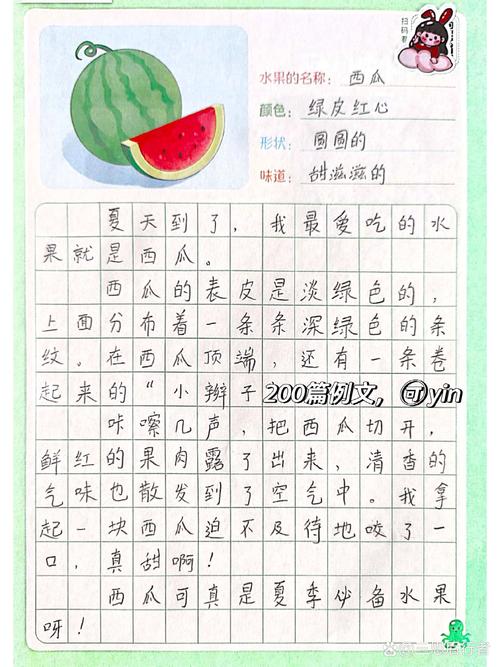 扫码看
水果的名称：西瓜
颜色：绿皮红心
形状：圆圆的
味道：甜滋滋的
夏天到了，我最爱吃的水
果就是西瓜。
西瓜的表皮是淡绿色的，
上面分布着一条条深绿色的条
纹。在西瓜顶端，还有一条卷
起来的“小辫子
200篇例文，可yin
咔嚓几声，把西瓜切开，
鲜红的果肉露了出来，清香的
气味也散发到了空气中。我拿
起一块西瓜迫不及待地咬了一
口，真甜啊！
西瓜可真是夏季必备水果
呀！